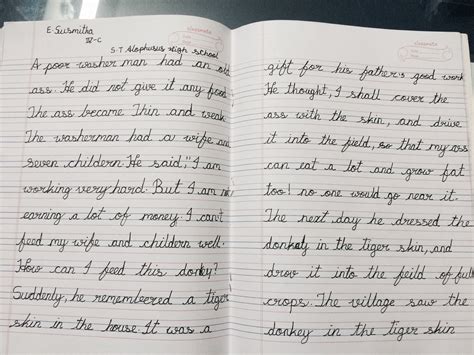 E. Susmitha
IV-C
S.T. Alophusus High School
A poor washer man had an old
ass. He did not give it any food
The ass became Thin and weak
The washerman had a wife and
seven childern. He said," I am
working very hard. But I am not
earning a lot of money. I can't
feed my wife and childern well.
How can I feed this donkey?
Suddenly, he remembeered a tiger
skin in the house. It was a
classmate
Date
Page
gift for his father's good work
He thought, I shall cover the
ass with the skin, and drive
it into the field, so that my ass
can eat a lot and grow fat
too! no one would go near it.
The next day he dressed the
donkey in the tiger skin, and
drov it into the feild of full
crops. The village saw the
donkey in the tiger skin